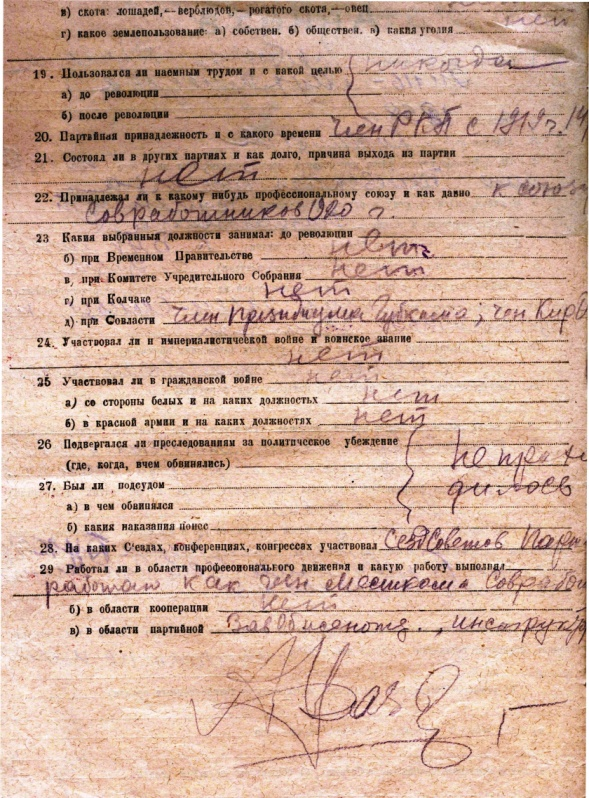 в) скота: лошадей,—верблюдов,—рогатого скота,—овец нет
г) какое землепользование: а) собствен. б) обществен. в) какия угодия
19. Пользовался ли наемным трудом и с какой целью никогда
а) до революции
б) после революции
20. Партийная принадлежность и с какого времени член РКП с 1919 г.
21. Состоял ли в других партиях и как долго, причина выхода из партии
нет
22. Принадлежал ли к какому нибудь профессиональному союзу и как давно к союзу
Совработников
23 Какия выбранныя должности занимал: до революции нет
б) при Временном Правительстве нет
в, при Комитете Учредительного Собрания нет
г) при Колчаке нет
д) при Совласти член президиума Губкома, член
24. Участвовал ли и империалистической войне и воинское звание
нет
25 Участвовал ли в гражданской войне нет
а) со стороны белых и на каких должностьх нет
б) в красной армии и на каких должностях нет
26 Подвергался ли преследованиям за политическое убеждение
(где, когда, вчем обвинялись)
27. Был ли подсудом
а) в чем обвинялся
б) какия наказания понес
28. На каких С'ездах, конференциях, конгрессах участвовал Советов
29 Работал ли в области професеонального движения и какую работу выполнял
работаю как член месткома
б) в области кооперации нет
в) в области партийной